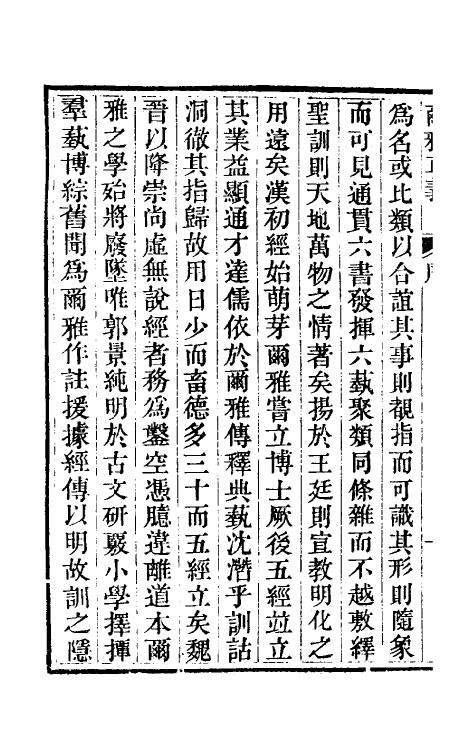 爲名或比類以合誼其事則覩指而可識其形則隨象
而可見通貫六書發揮六埶聚類同條雜而不越敷繹
聖訓則天地萬物之情著矣揚於王廷則宣教明化之
用遠矣漢初經始萌芽爾雅嘗立博士厥後五經竝立
其業益顯通才達儒依於爾雅傳釋典埶沈潛乎訓詁
洞徹其指歸故用日少而畜德多三十而五經立矣魏
晉以降崇尚虛無說經者務爲鑿空憑臆違離道本爾
雅之學始將廢墜唯郭景純明於古文研覈小學擇撢
羣埶博綜舊聞爲爾雅作註援據經傳以明故訓之隱